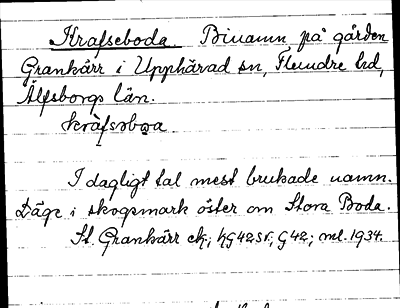 Krafseboda. Binamn på gården
Grankärr i Upphärad sn, Flundre hd,
Älfsborgs län.
kràfsəbωa
I dagligt tal mest brukade namn.
Läge i skogsmark öster om Stora Boda.
St. Grankärr ek.; hG42SV; G42; ml. 1934.